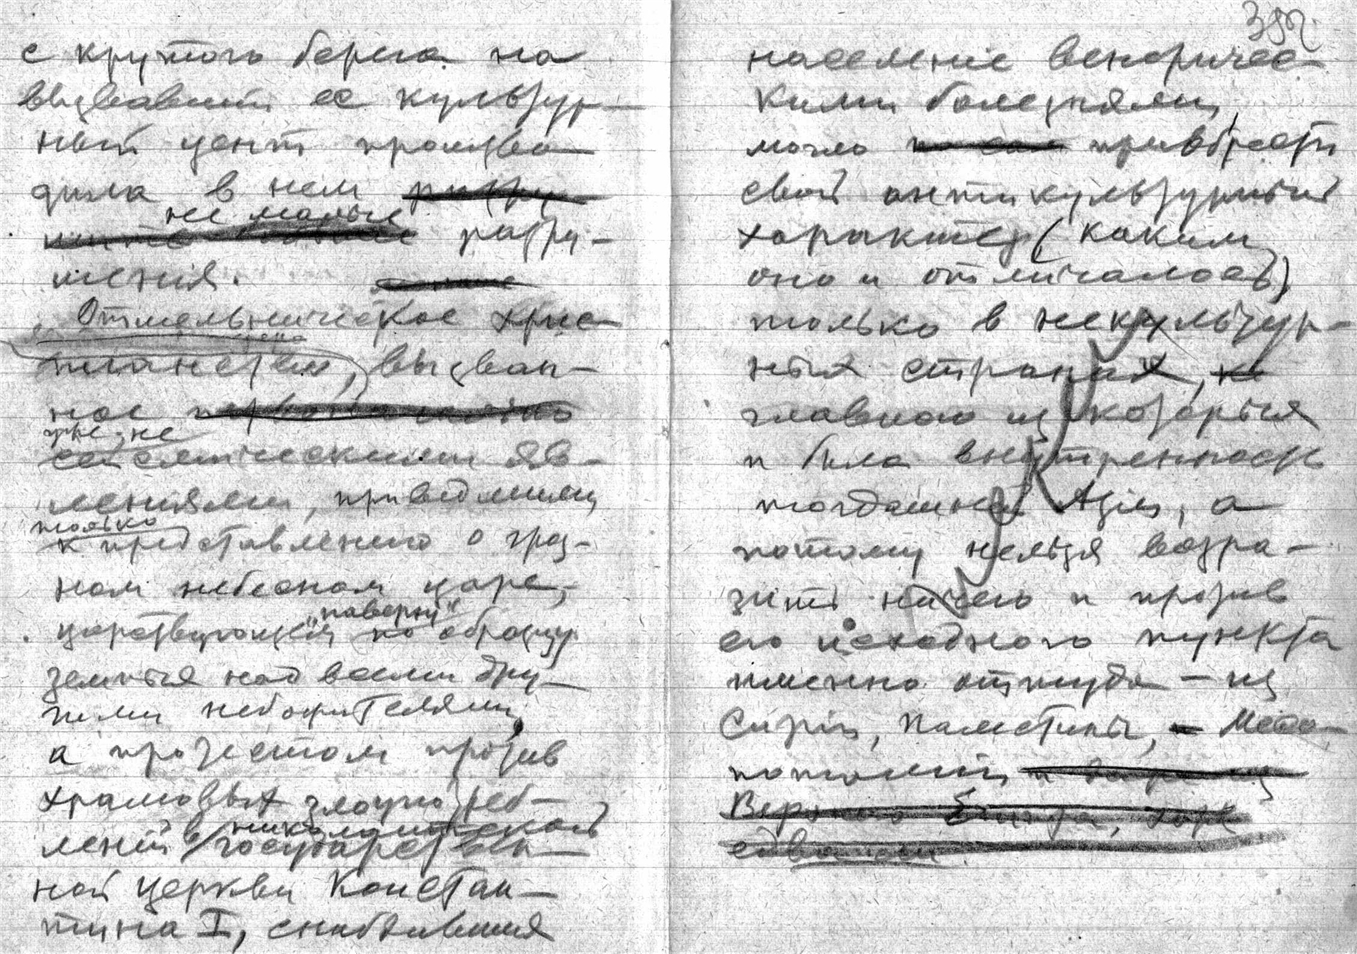 с крутого берега на
вызвавший ее культур-
ный центр произво-
дила в нем
не малые
разру-
шения.
Отшельническое хрис-
тианство, вызван-
ное
уже не
сейсмическими яв-
лениями, приведшими
только
к представлению о гроз-
ном небесном царе,
царствующем по образцу
"наверху"
земных над всеми дру-
гими небожителями,
а протестом против
храмовых злоупотреб-
лений в николаитской
государствен-
ной церкви Констан-
тина I, снабжавшия
392
население венеричес-
кими болезнями,
могло приобрести
свой антикультурный
характер (каким
оно и отличалось)
только в некультур-
ных странах,
главною из которых
и была внутренность
тогдашней Азии, а
потому нельзя возра-
зить ничего и против
его исходного пункта
именно оттуда – из
Сирии, Палестины, Месо-
потамии